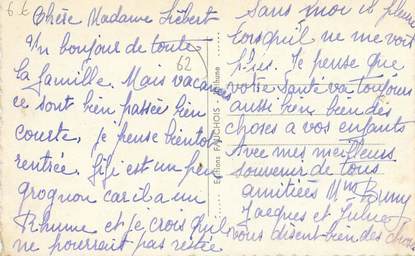 6.6
Chère Madame Liébert
Un bonjour de toute
62
la famille. Mais vacances
ce sont bien passée bien
courte, je pense bientot
rentrée. Gigi est un peu
grognon car il a un
Rhume et je crois qu'il
ne pourrait pas restée
Editions FAUCHOIS - Béthune
Sans moi il pleure
lorsqu'il ne me voit
plus. Je pense que
votre Santé va toujours
aussi bien bien des
choses a vos enfants
Avec mes meilleurs
souvenir de tous
amitiées Mme
Jacques et
vous disent bien des choses